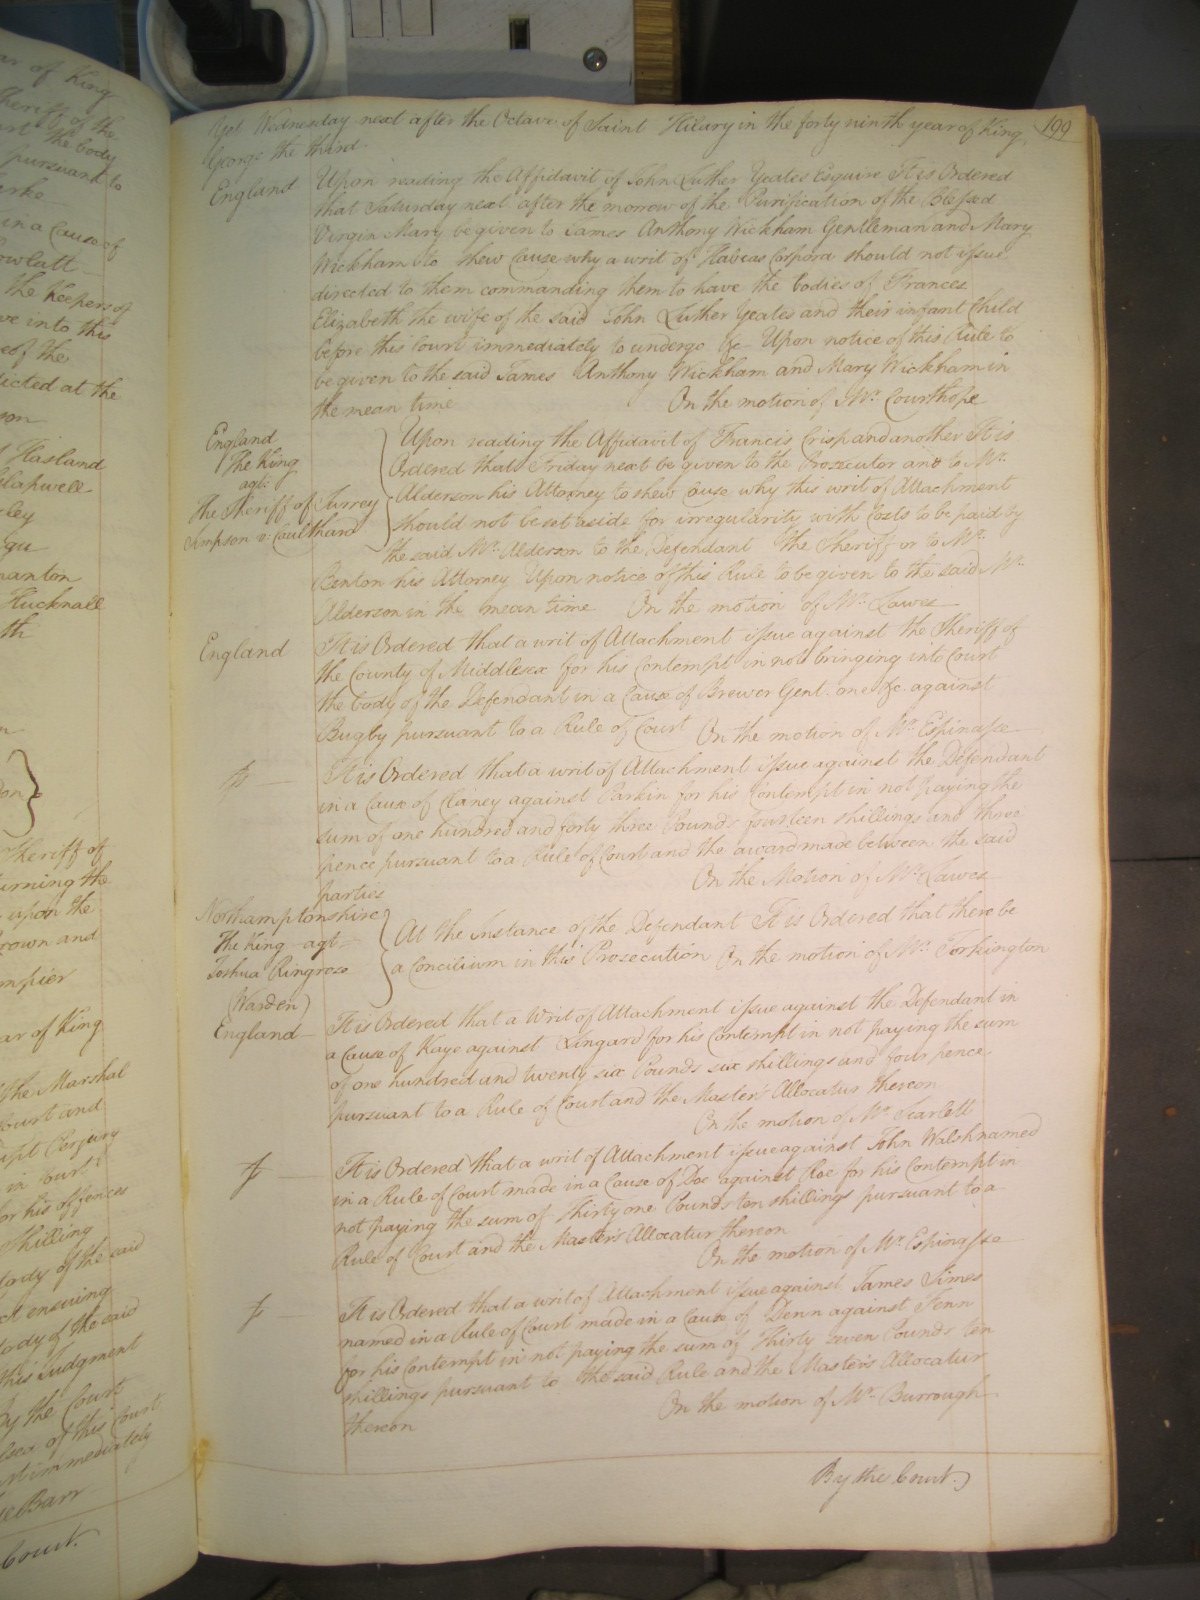 ar of King
Sheriff of the
the body
pursuant to
in a Cause of
owlatt
the Keepers of
ve into this
eof the
icted at the
son
Hasland
lapwell
ley
manton
Hucknall
th
on
Sheriff of
urning the
upon the
rown and
mpier
ar of King
the Marshal
Court and
upt Perjury
in Court
or his offences
Shilling
tody of the said
ct ensuing
tody of the said
this Judgment
By the Court
of this Court
immediately
Barr
Court.
Yet Wednesday next after the Octave of Saint Hilary in the forty ninth year of King 199
George the third.
England Upon reading the Affidavit of John Luther Yeates Esquire It is Ordered
that Saturday next after the morrow of the Purification of the blessed
Virgin Mary be given to James Anthony Wickham Gentleman and Mary
Wickham to shew Cause why a writ of Habeas Corpora should not issue
directed to them commanding them to have the bodies of Frances
Elizabeth the wife of the said John Luther Yeates and their infant Child
before this Court immediately to undergo &c Upon notice of this Rule to
be given to the said James Anthony Wickham and Mary Wickham in
the mean time On the motion of Mr. Courthope
England
The King
agt.
The Sheriff of Surrey
Simpson v. Coulthard
Upon reading the Affidavit of Francis Crisp and another It is
Ordered that Friday next be given to the Prosecutor and to Mr.
Alderson his Attorney to shew Cause why this writ of Attachment
should not be set aside for irregularity with Costs to be paid by
the said Mr. Alderson to the Defendant the Sheriff or to Mr.
Benton his Attorney Upon notice of this Rule to be given to the said Mr.
Alderson in the mean time On the motion of Mr. Lawes
England It is Ordered that a writ of Attachment issue against the Sheriff of
the County of Middlesex for his Contempt in not bringing into Court
the body of the Defendant in a Cause of Brewer Gent. one &c. against
Bugby pursuant to a Rule of Court On the motion of Mr. Espinasse
It is Ordered that a writ of Attachment issue against the Defendant
in a Cause of Claney against Parkin for his Contempt in not paying the
sum of one hundred and forty three Pounds fourteen shillings and three
pence pursuant to a Rule of Court and the award made between the said
parties On the Motion of Mr. Lawes
Northamptonshire
The King agt.
Joshua Ringrose
(Warden)
At the Instance of the Defendant It is Ordered that there be
a Concilium in this Prosecution On the motion of Mr. Torkington
England It is Ordered that a Writ of Attachment issue against the Defendant in
a Cause of Kaye against Lingard for his Contempt in not paying the sum
of one hundred and twenty six Pounds six shillings and four pence
pursuant to a Rule of Court and the Master's Allocatur thereon
On the motion of Mr. Scarlett
It is Ordered that a writ of Attachment issue against John Walsh named
in a Rule of Court made in a Cause of Doe against Roe for his Contempt in
not paying the sum of Thirty one Pounds ten shillings pursuant to a
Rule of Court and the Master's Allocatur thereon
On the motion of Mr. Espinasse
It is Ordered that a writ of Attachment issue against James Simes
named in a Rule of Court made in a Cause of Denn against Fenn
for his Contempt in not paying the sum of Thirty seven Pounds ten
shillings pursuant to the said Rule and the Master's Allocatur
thereon On the motion of Mr. Burrough
By the Court.